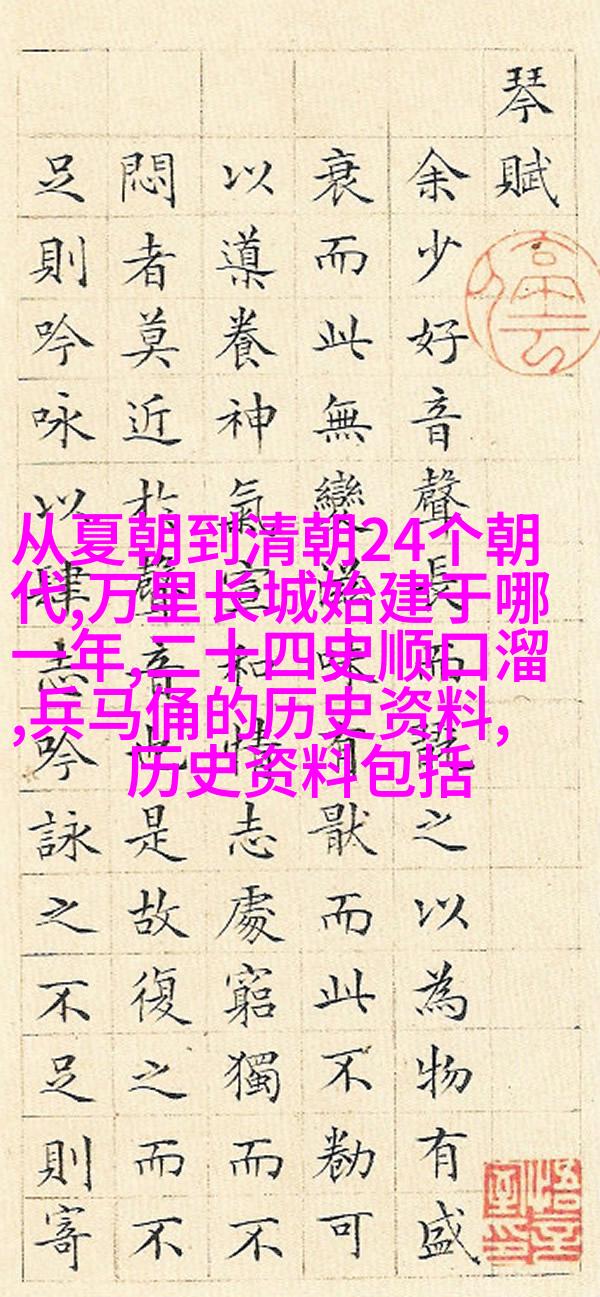 琴賦
余少好音聲長而翫之以為物有盛
衰而此無變滋味有猒而此不勌可
以導養神氣宣和情志處窮獨而不
悶者莫近於聲音也是故復之而不
足則吟咏以肆志吟詠之不足則寄
停云
从夏朝到清朝24个朝
代,万里长城始建于哪
一年,二十四史顺口溜
,兵马俑的历史资料,
历史资料包括